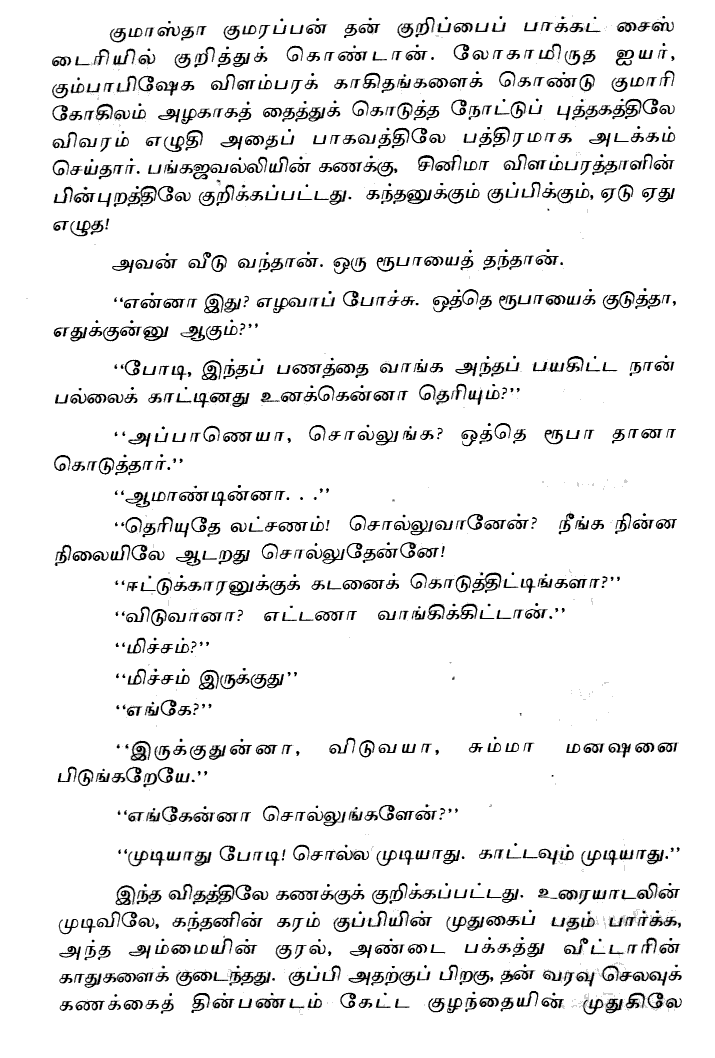 குமாஸ்தா குமரப்பன் தன் குறிப்பைப் பாக்கட் சைஸ்
டைரியில் குறித்துக் கொண்டான். லோகாமிருத ஐயர்,
கும்பாபிஷேக விளம்பரக் காகிதங்களைக் கொண்டு குமாரி
கோகிலம் அழகாகத் தைத்துக் கொடுத்த நோட்டுப் புத்தகத்திலே
விவரம் எழுதி அதைப் பாகவத்திலே பத்திரமாக அடக்கம்
செய்தார். பங்கஜவல்லியின் கணக்கு, சினிமா விளம்பரத்தாளின்
பின்புறத்திலே குறிக்கப்பட்டது. கந்தனுக்கும் குப்பிக்கும், ஏடு ஏது
எழுத!
அவன் வீடு வந்தான். ஒரு ரூபாயைத் தந்தான்.
‘‘என்னா இது? எழவாப் போச்சு. ஒத்தெ ரூபாயைக் குடுத்தா,
எதுக்குன்னு ஆகும்?’’
‘‘போடி, இந்தப் பணத்தை வாங்க அந்தப் பயகிட்ட நான்
பல்லைக் காட்டினது உனக்கென்னா தெரியும்?’’
‘‘அப்பாணெயா, சொல்லுங்க? ஒத்தெ ரூபா தானா
கொடுத்தார்.’’
‘‘ஆமாண்டின்னா. . .’’
‘‘தெரியுதே லட்சணம்! சொல்லுவானேன்? நீங்க நின்ன
நிலையிலே ஆடறது சொல்லுதேன்னே!
‘‘ஈட்டுக்காரனுக்குக் கடனைக் கொடுத்திட்டிங்களா?’’
‘‘விடுவானா? எட்டணா வாங்கிக்கிட்டான்.’’
‘‘மிச்சம்?’’
‘‘மிச்சம் இருக்குது’’
‘‘எங்கே?’’
‘‘இருக்குதுன்னா, விடுவயா, சும்மா மனஷனை
பிடுங்கறேயே.’’
‘‘எங்கேன்னா சொல்லுங்களேன்?’’
‘‘முடியாது போடி! சொல்ல முடியாது. காட்டவும் முடியாது.’’
இந்த விதத்திலே கணக்குக் குறிக்கப்பட்டது. உரையாடலின்
முடிவிலே, கந்தனின் கரம் குப்பியின் முதுகைப் பதம் பார்க்க,
அந்த அம்மையின் குரல், அண்டை பக்கத்து வீட்டாரின்
காதுகளைக் குடைந்தது. குப்பி அதற்குப் பிறகு, தன் வரவு செலவுக்
கணக்கைத் தின்பண்டம் கேட்ட குழந்தையின் முதுகிலே